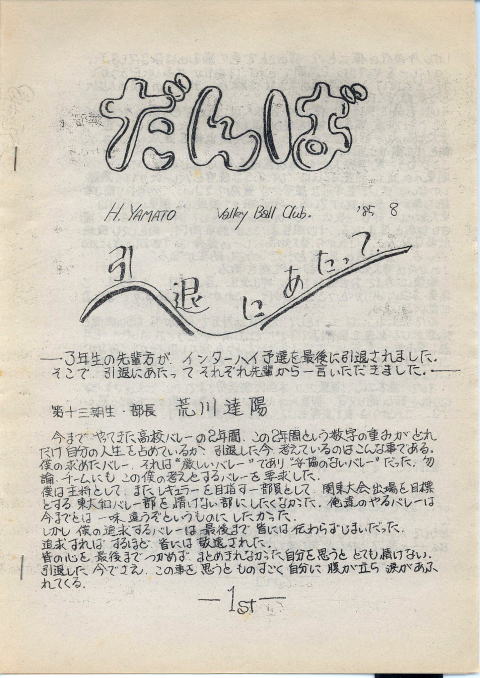 だんば
H. YAMATO Valley Ball Club. '85 8
引退にあたって
―3年生の先輩方が、インターハイ予選を最後に引退されました。
そこで、引退にあたってそれぞれ先輩から一言いただきました。―
第十三期生・部長 荒川達陽
今までやってきた高校バレーの2年間、この2年間という数字の重みがどれ
だけ自分の人生を占めているか、引退した今、考えているのはこんな事である。
僕の求めたバレー、それは"厳しいバレー"であり"予備のないバレー"だった。勿
論、チームにもこの僕の考えとするバレーを要求した。
僕は主将として、またレギュラーを目指す一部員として、関東大会出場を目標
とする東大和バレー部を情けない部にしたくなかった。俺達のやるバレーは
今までとは一味違うぞというものにしたかった。
しかし、僕の追求するバレーは最後まで皆には伝わらずじまいだった。
追求すればするほど、皆には敬遠された。
皆の心を最後までつかめず、まとめきれなかった自分を思うととても情けない。
引退した今でさえ、この事を思うとものすごく自分に腹が立ち、涙があふ
れてくる。
―1st―